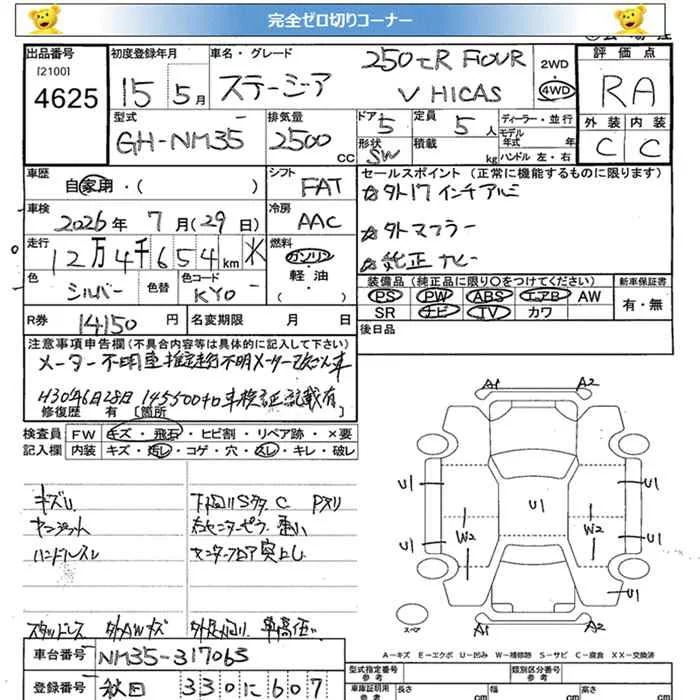 完全ゼロ切りコーナー
出品番号
[2100]
4625
初度登録年月
15 5月
車名・グレード
ステージア
250tR FOUR
V HICAS
2WD
・
4WD
評価点
RA
外装 内装
C C
型式
GH-NM35
排気量
2500 CC
ドア 5
形状 SW
定員 5人
積載 kg
ディーラー・並行
モデル年式 年式
ハンドル 左・右
車歴
自家用・( )
シフト
FAT
車検
2026年 7月(29日)
冷房
AAC
走行
12万4千654km
燃料
ガソリン
・
軽・油
( )
色
シルバー
色替
色コード
KY0
R券 14150円
名変期限 月 日
セールスポイント (正常に機能するものに限ります)
☆外17インチアルミ
☆外マフラー
☆純正ナビー
装備品 (純正品に限り○をつけてください)
PS PW ABS エアB AW
SR ナビ TV カワ
新車保証書
有・無
後日品
注意事項申告欄(不具合内容等は具体的に記入して下さい)
メーター不明車
H30年6月28日 145500
車検証記載有
修復歴 有 [箇所
検査員 FW キズ・飛石・ヒビ割・リペア跡・×要
記入欄 内装 キズ・汚レ・コゲ・穴・スレ・キレ・破レ
キズU
ハンドルスレ
C
スタッドレス 外AWキズ
車高低い
A1 A2
U1 U1
U1
W2 W2
U1 U1
U1
A1 A2
スペア
A-キズ E-エクボ U-凹み W-補修跡 S-サビ C-腐食 XX-交換済
車台番号 NM35-317065
登録番号 秋田 330に607
型式指定番号
類別区分番号
車庫証明用 長さ cm 幅 cm 高さ cm